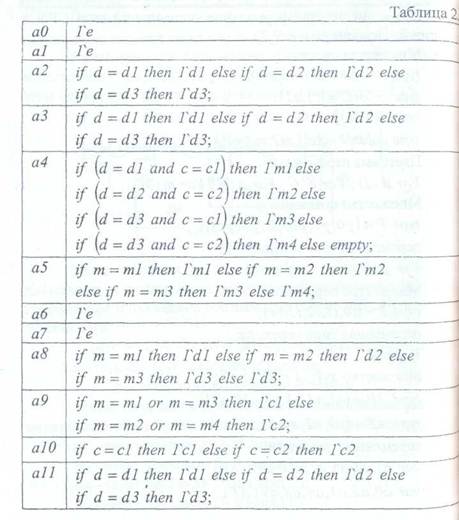 Таблица 2
a0 1`e
a1 1`e
a2 if d = d1 then 1`d1 else if d = d2 then 1`d2 else
if d = d3 then 1`d3;
a3 if d = d1 then 1`d1 else if d = d2 then 1`d2 else
if d = d3 then 1`d3;
a4 if (d = d1 and c = c1) then 1`m1 else
if (d = d2 and c = c2) then 1`m2 else
if (d = d3 and c = c1) then 1`m3 else
if (d = d3 and c = c2) then 1`m4 else empty;
a5 if m = m1 then 1`m1 else if m = m2 then 1`m2
else if m = m3 then 1`m3 else 1`m4;
a6 1`e
a7 1`e
a8 if m = m1 then 1`d1 else if m = m2 then 1`d2 else
if m = m3 then 1`d3 else 1`d3;
a9 if m = m1 or m = m3 then 1`c1 else
if m = m2 or m = m4 then 1`c2;
a10 if c = c1 then 1`c1 else if c = c2 then 1`c2
a11 if d = d1 then 1`d1 else if d = d2 then 1`d2 else
if d = d3 then 1`d3;